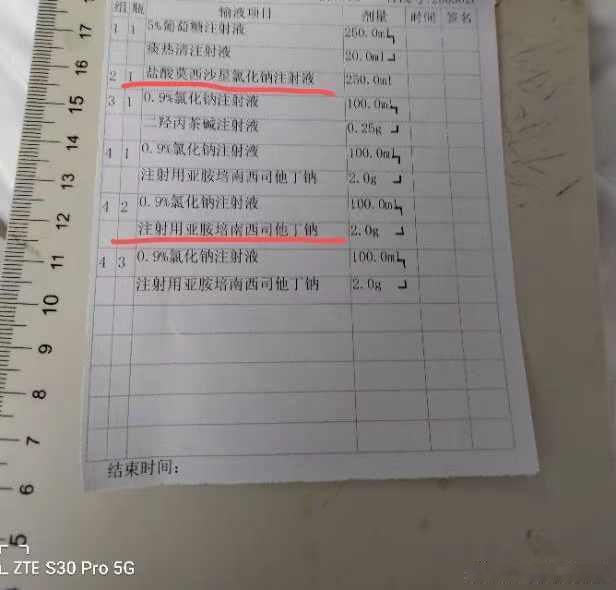 组 瓶 输液项目 剂量 时间 签名
1 1 5%葡萄糖注射液 250.0ml
痰热清注射液 20.0ml
2 1 盐酸莫西沙星氯化钠注射液 250.0ml
3 1 0.9%氯化钠注射液 100.0ml
二羟丙茶碱注射液 0.25g
4 1 0.9%氯化钠注射液 100.0ml
注射用亚胺培南西司他丁钠 2.0g
4 2 0.9%氯化钠注射液 100.0ml
注射用亚胺培南西司他丁钠 2.0g
4 3 0.9%氯化钠注射液 100.0ml
注射用亚胺培南西司他丁钠 2.0g
结束时间:
17
16
15
14
13
12
11
10
9
8
7
6
5
ZTE S30 Pro 5G